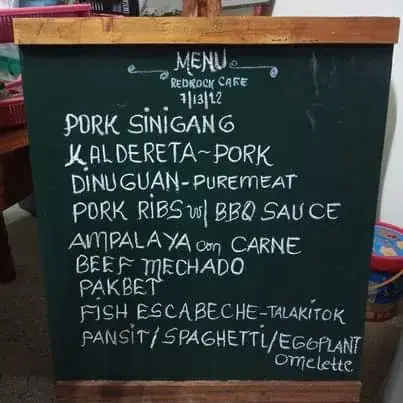 MENU
REDROCK CAFE
7/13/22
PORK SINIGANG
KALDERETA~PORK
DINUGUAN-PUREMEAT
PORK RIBS w/ BBQ SAUCE
AMPALAYA con CARNE
BEEF MECHADO
PAKBET
FISH ESCABECHE-TALAKITOK
PANSIT/SPAGHETTI/EGGPLANT
omelette